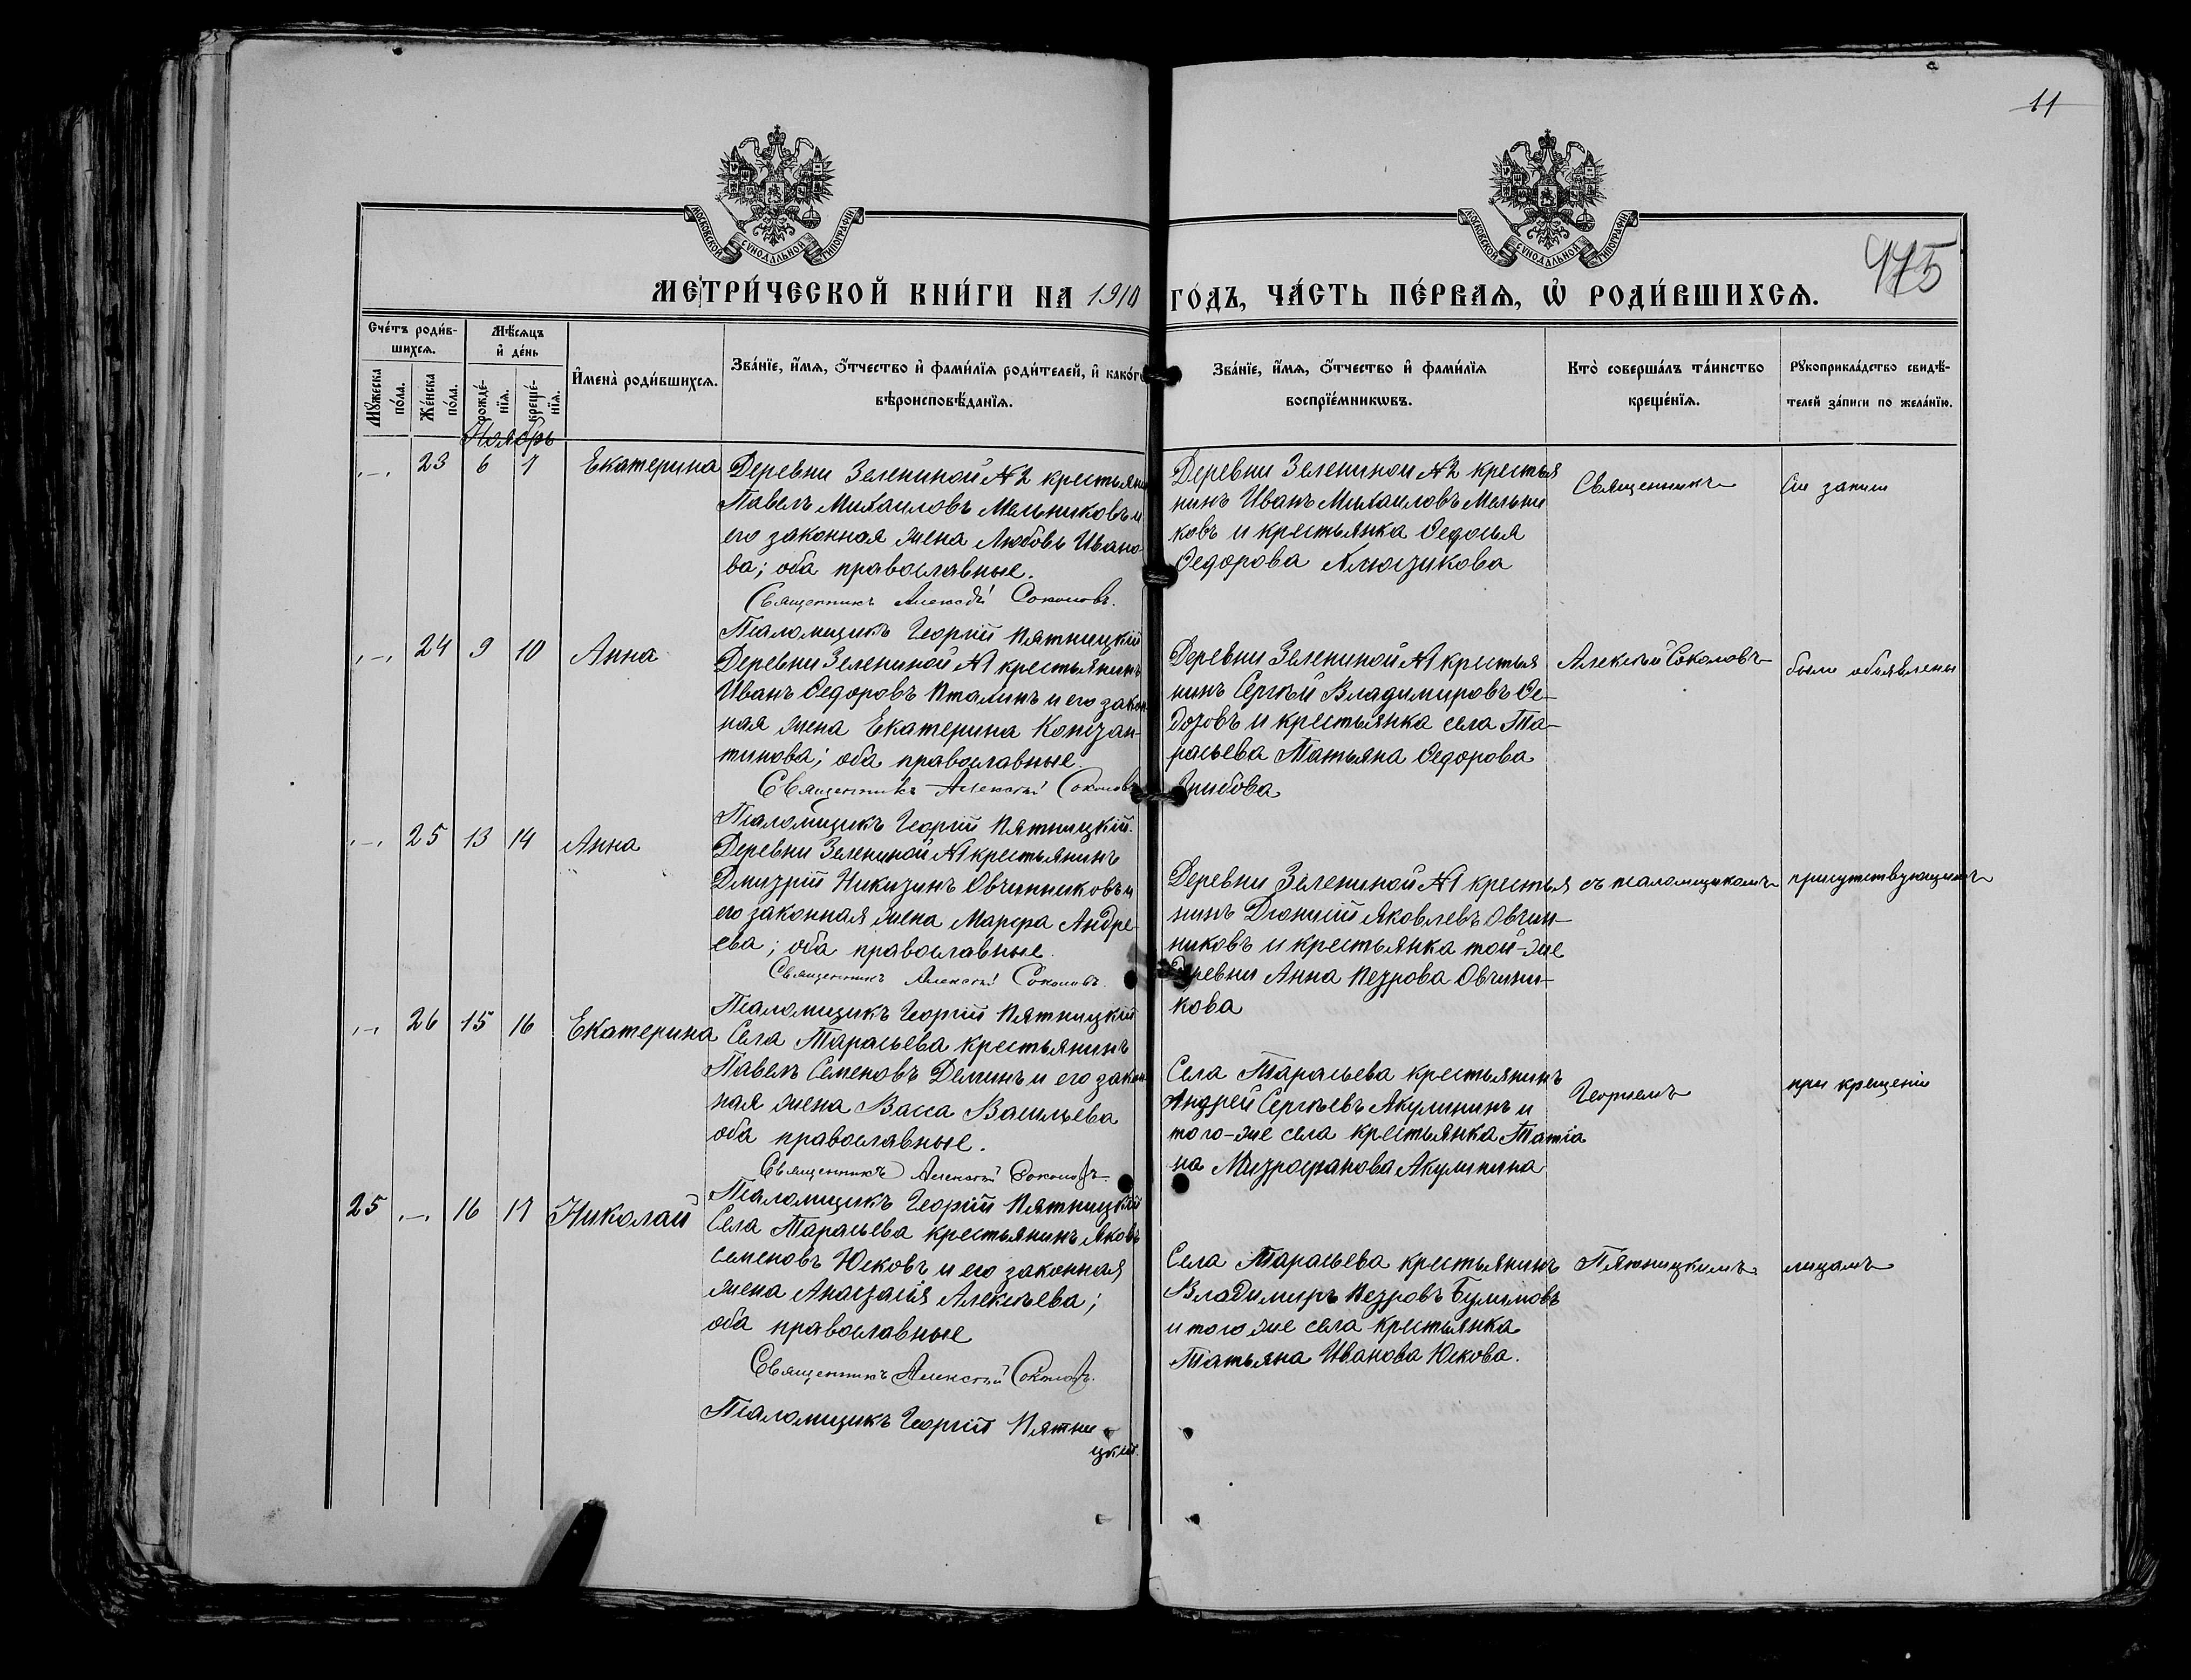 11
МОСКОВСКОЙ СѴНОДАЛЬНОЙ ТИПОГРАФІИ
МОСКОВСКОЙ СѴНОДАЛЬНОЙ ТИПОГРАФІИ
975
МЕТРИ́ЧЕСКОЙ КНИ́ГИ НА 1910 ГО́ДЪ, ЧА́СТЬ ПЕ́РВАѦ, Ѡ҆ РОДИ́ВШИХСѦ.
Сче́тъ роди́в-
шихсѧ.
Мꙋ́жеска
по́ла.
Же́нска
по́ла.
Мѣ́сѧцъ
и҆ де́нь
рожде́-
нїѧ.
креще́-
нїѧ.
И҆мена̀ роди́вшихсѧ.
Зва́нїе, и҆́мѧ, ѻ҆́тчество и҆ фами́лїѧ роди́телей, и҆ како́гѡ
вѣроисповѣ́данїѧ.
Зва́нїе, и҆́мѧ, ѻ҆́тчество и҆ фами́лїѧ
воспрїе́мникѡвъ.
Кто̀ соверша́лъ та́инство
креще́нїѧ.
Рꙋкоприкла́дство свидѣ́-
телей за́писи по жела́нїю.
Ноябрь
23 6 7 Екатерина
Деревни Зелениной № 2 крестьянин
Павелъ Михаиловъ Мельниковъ и
его законная жена Любовь Ивано-
ва; оба православные.
Священникъ Алексѣй Соколовъ.
Псаломщикъ Георгій Пятницкій
Деревни Зелениной № 2 крестья
нинъ Иванъ Михаиловъ Мельни
ковъ и крестьянка Ѳедосья
Ѳедорова Алюшникова
Священникъ
Сіи записи
24 9 10 Анна
Деревни Зелениной № 1 крестьянинъ
Иванъ Ѳедоровъ Пталинъ и его закон
ная жена Екатерина Констан-
тинова; оба православные.
Священникъ Алексѣй Соколовъ
Псаломщикъ Георгій Пятницкій.
Деревни Зелениной № 1 крестья
нинъ Сергѣй Владимировъ Ѳе-
дотовъ и крестьянка села Та-
расьева Татьяна Ѳедорова
Грибова
Алексѣй Соколовъ
были объявлены
25 13 14 Анна
Деревни Зелениной № 1 крестьянинъ
Дмитрій Никитинъ Овчинниковъ и
его законная жена Марѳа Андре
ева; оба православные.
Священникъ Алексѣй Соколовъ.
Псаломщикъ Георгій Пятницкій
Деревни Зелениной № 1 крестья
нинъ Діонисій Яковлевъ Овчин-
никовъ и крестьянка той-же
деревни Анна Петрова Овчинни-
кова
съ псаломщикомъ
присутствующимъ
26 15 16 Екатерина
Села Тарасьева крестьянинъ
Павелъ Семеновъ Деминъ и его закон
ная жена Васса Васильева
оба православные.
Священникъ Алексѣй Соколовъ
Псаломщикъ Георгій Пятницкій
Села Тарасьева крестьянинъ
Андрей Сергѣевъ Акулининъ и
того-же села крестьянка Татіа
на Митрофанова Акулинина
Георгіемъ
при крещеніи
25 16 17 Николай
Села Тарасьева крестьянинъ Яковъ
Семеновъ Юсковъ и его законная
жена Анастасія Алексѣева;
оба православные
Священникъ Алексѣй Соколовъ.
Псаломщикъ Георгій Пятни
цкій.
Села Тарасьева крестьянинъ
Владимиръ Петровъ Булимовъ
и того же села крестьянка
Татьяна Иванова Юскова.
Пятницкимъ
лицамъ